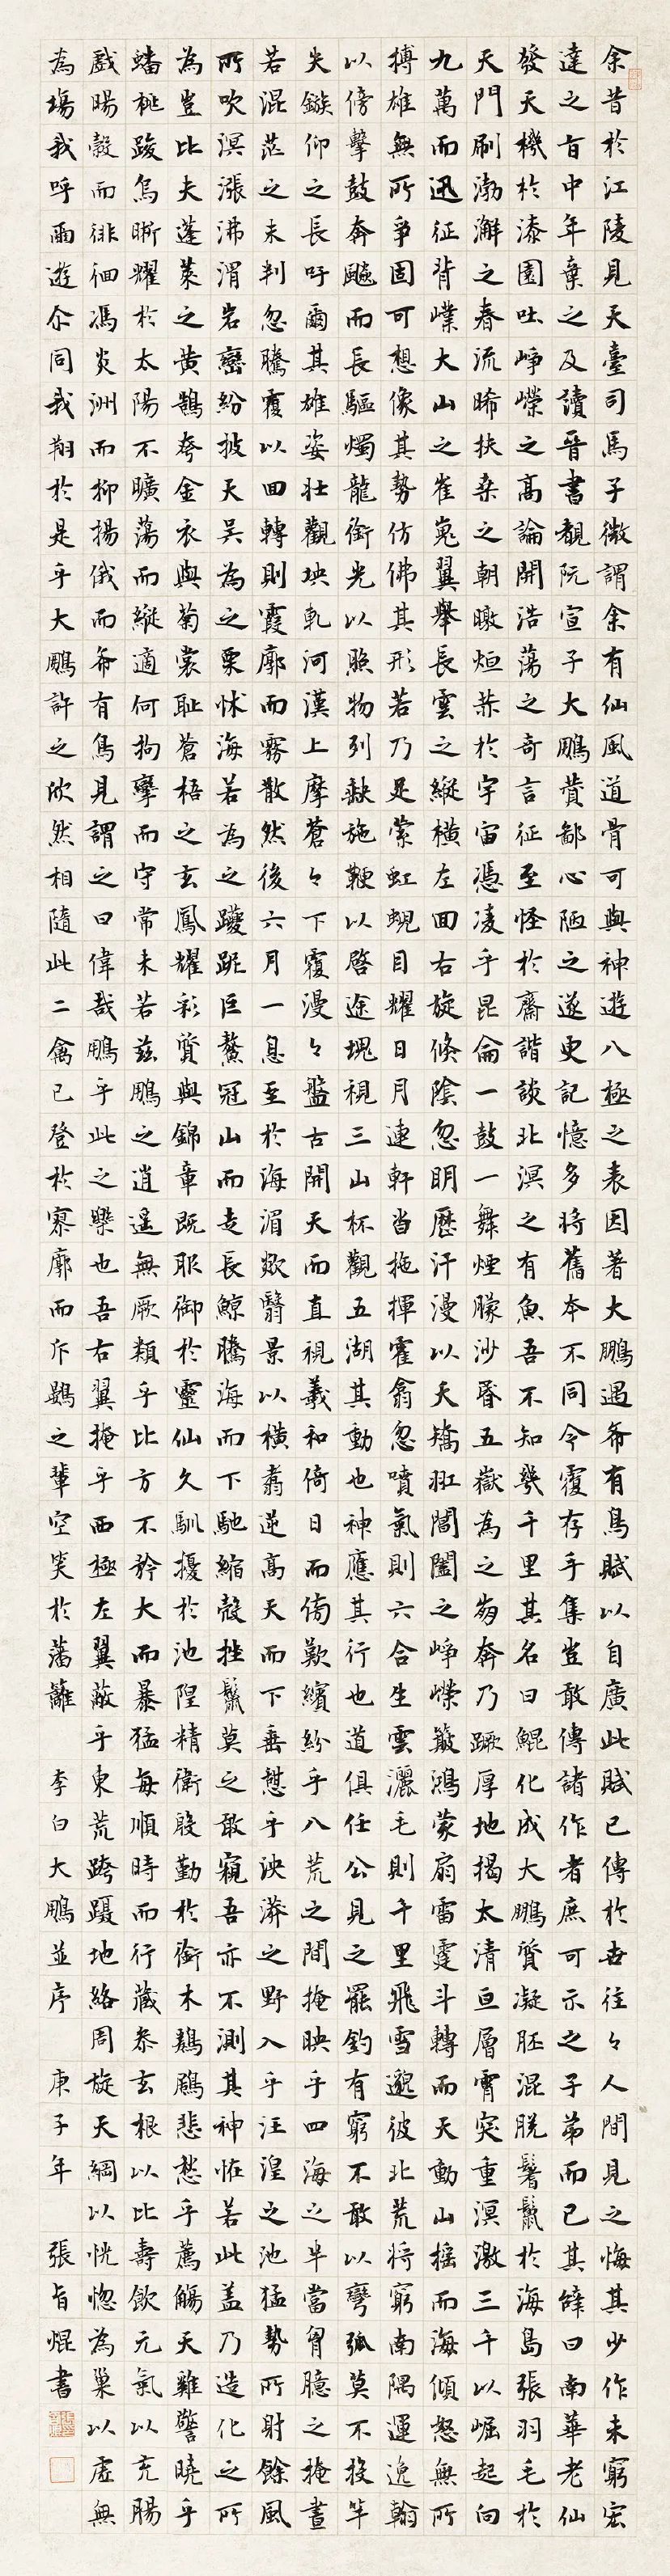 余昔於江陵見天臺司馬子微謂余有仙風道骨可與神遊八極之表因著大鵬遇希有鳥賦以自廣此賦已傳於世往々人間見之悔其少作未窮宏
達之旨中年棄之及讀晉書覩阮宣子大鵬贊鄙心陋之遂更記憶多將舊本不同今覆存手集豈敢傳諸作者庶可示之子弟而已其辭曰南華老仙
發天機於漆園吐崢嶸之高論開浩蕩之奇言征至怪於齋諧談北溟之有魚吾不知幾千里其名曰鯤化成大鵬質凝胚混脫鬐鬣於海島張羽毛於
天門刷渤澥之春流晞扶桑之朝暾烜赫於宇宙憑凌乎昆侖一鼓一舞煙朦沙昏五嶽為之崩奔乃蹶厚地揭太清亘層霄突重溟激三千以崛起向
九萬而迅征背嶪大山之崔嵬翼舉長雲之縱橫左回右旋倏陰忽明歷汗漫以夭矯羾閶闔之崢嶸簸鴻蒙扇雷霆斗轉而天動山搖而海傾怒無所
搏雄無所爭固可想像其勢仿佛其形若乃足縈虹蜺目耀日月連軒沓拖揮霍翕忽噴氣則六合生雲灑毛則千里飛雪邈彼北荒將窮南隅運逸翰
以傍擊鼓奔飈而長驅燭龍銜光以照物列缺施鞭以啓途塊視三山杯觀五湖其動也神應其行也道俱任公見之罷釣有窮不敢以彎弧莫不投竿
失鏃仰之長吁爾其雄姿壯觀坱軋河漢上摩蒼々下覆漫々盤古開天而直視羲和倚日而傍歎繽紛乎八荒之間掩映乎四海之半當胷臆之掩晝
若混茫之未判忽騰覆以回轉則霞廓而霧散然後六月一息至於海湄欻翳景以橫翥逆高天而下垂憩乎泱漭之野入乎汪湟之池猛勢所射餘風
所吹溟漲沸渭岩巒紛披天吳為之栗怵海若為之躨跜巨鰲冠山而走長鯨騰海而下馳縮殼挫鬣莫之敢窺吾亦不測其神怪若此蓋乃造化之所
為豈比夫蓬萊之黃鵠夸金衣與菊裳恥蒼梧之玄鳳耀彩質與錦章既服御於靈仙久馴擾於池隍精衛殷勤於銜木鶢鶋悲愁乎薦觴天雞警曉乎
蟠桃踆烏晰耀於太陽不曠蕩而縱適何拘攣而守常未若茲鵬之逍遥無厥類乎比方不矜大而暴猛每順時而行藏參玄根以比壽飲元氣以充腸
戲暘穀而徘徊馮炎洲而抑揚俄而希有鳥見謂之曰偉哉鵬乎此之樂也吾右翼掩乎西極左翼蔽乎東荒跨躡地絡周旋天綱以恍惚為巢以虛無
為場我呼爾遊尒同我翔於是乎大鵬許之欣然相隨此二禽已登於寥廓而斥鷃之輩空笑於藩籬 李白大鵬並序 庚子年 張旨焜書